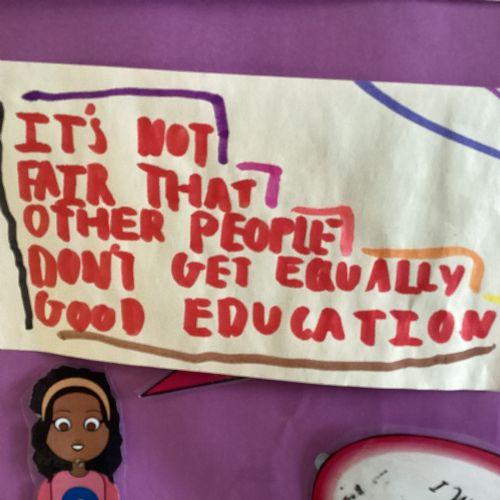 IT'S NOT
FAIR THAT
OTHER PEOPLE
DON'T GET EQUALLY
GOOD EDUCATION